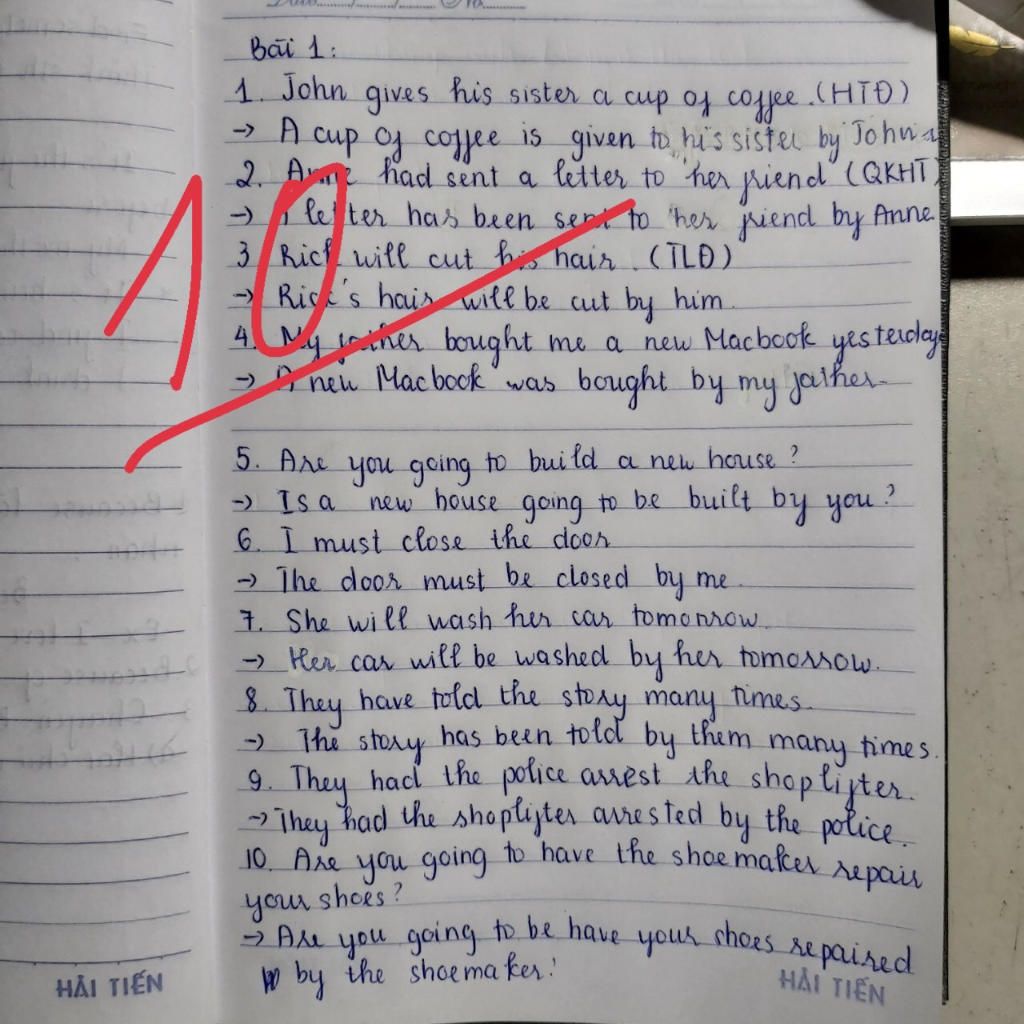 Date...../...../..... No........
Bài 1:
1. John gives his sister a cup of coffee. (HTĐ)
→ A cup of coffee is given to his sister by John.
2. Anne had sent a letter to her friend (QKHT)
→ A letter has been sent to her friend by Anne.
3. Rick will cut his hair. (TLĐ)
→ Rick's hair will be cut by him.
4. My father bought me a new Macbook yesterday
→ A new Macbook was bought by my father.
10
5. Are you going to build a new house?
→ Is a new house going to be built by you?
6. I must close the door
→ The door must be closed by me.
7. She will wash her car tomorrow.
→ Her car will be washed by her tomorrow.
8. They have told the story many times.
→ The story has been told by them many times.
9. They had the police arrest the shoplifter.
→ They had the shoplifter arrested by the police.
10. Are you going to have the shoemaker repair
your shoes?
→ Are you going to be have your shoes repaired
by the shoemaker?
HẢI TIẾN
HẢI TIẾN